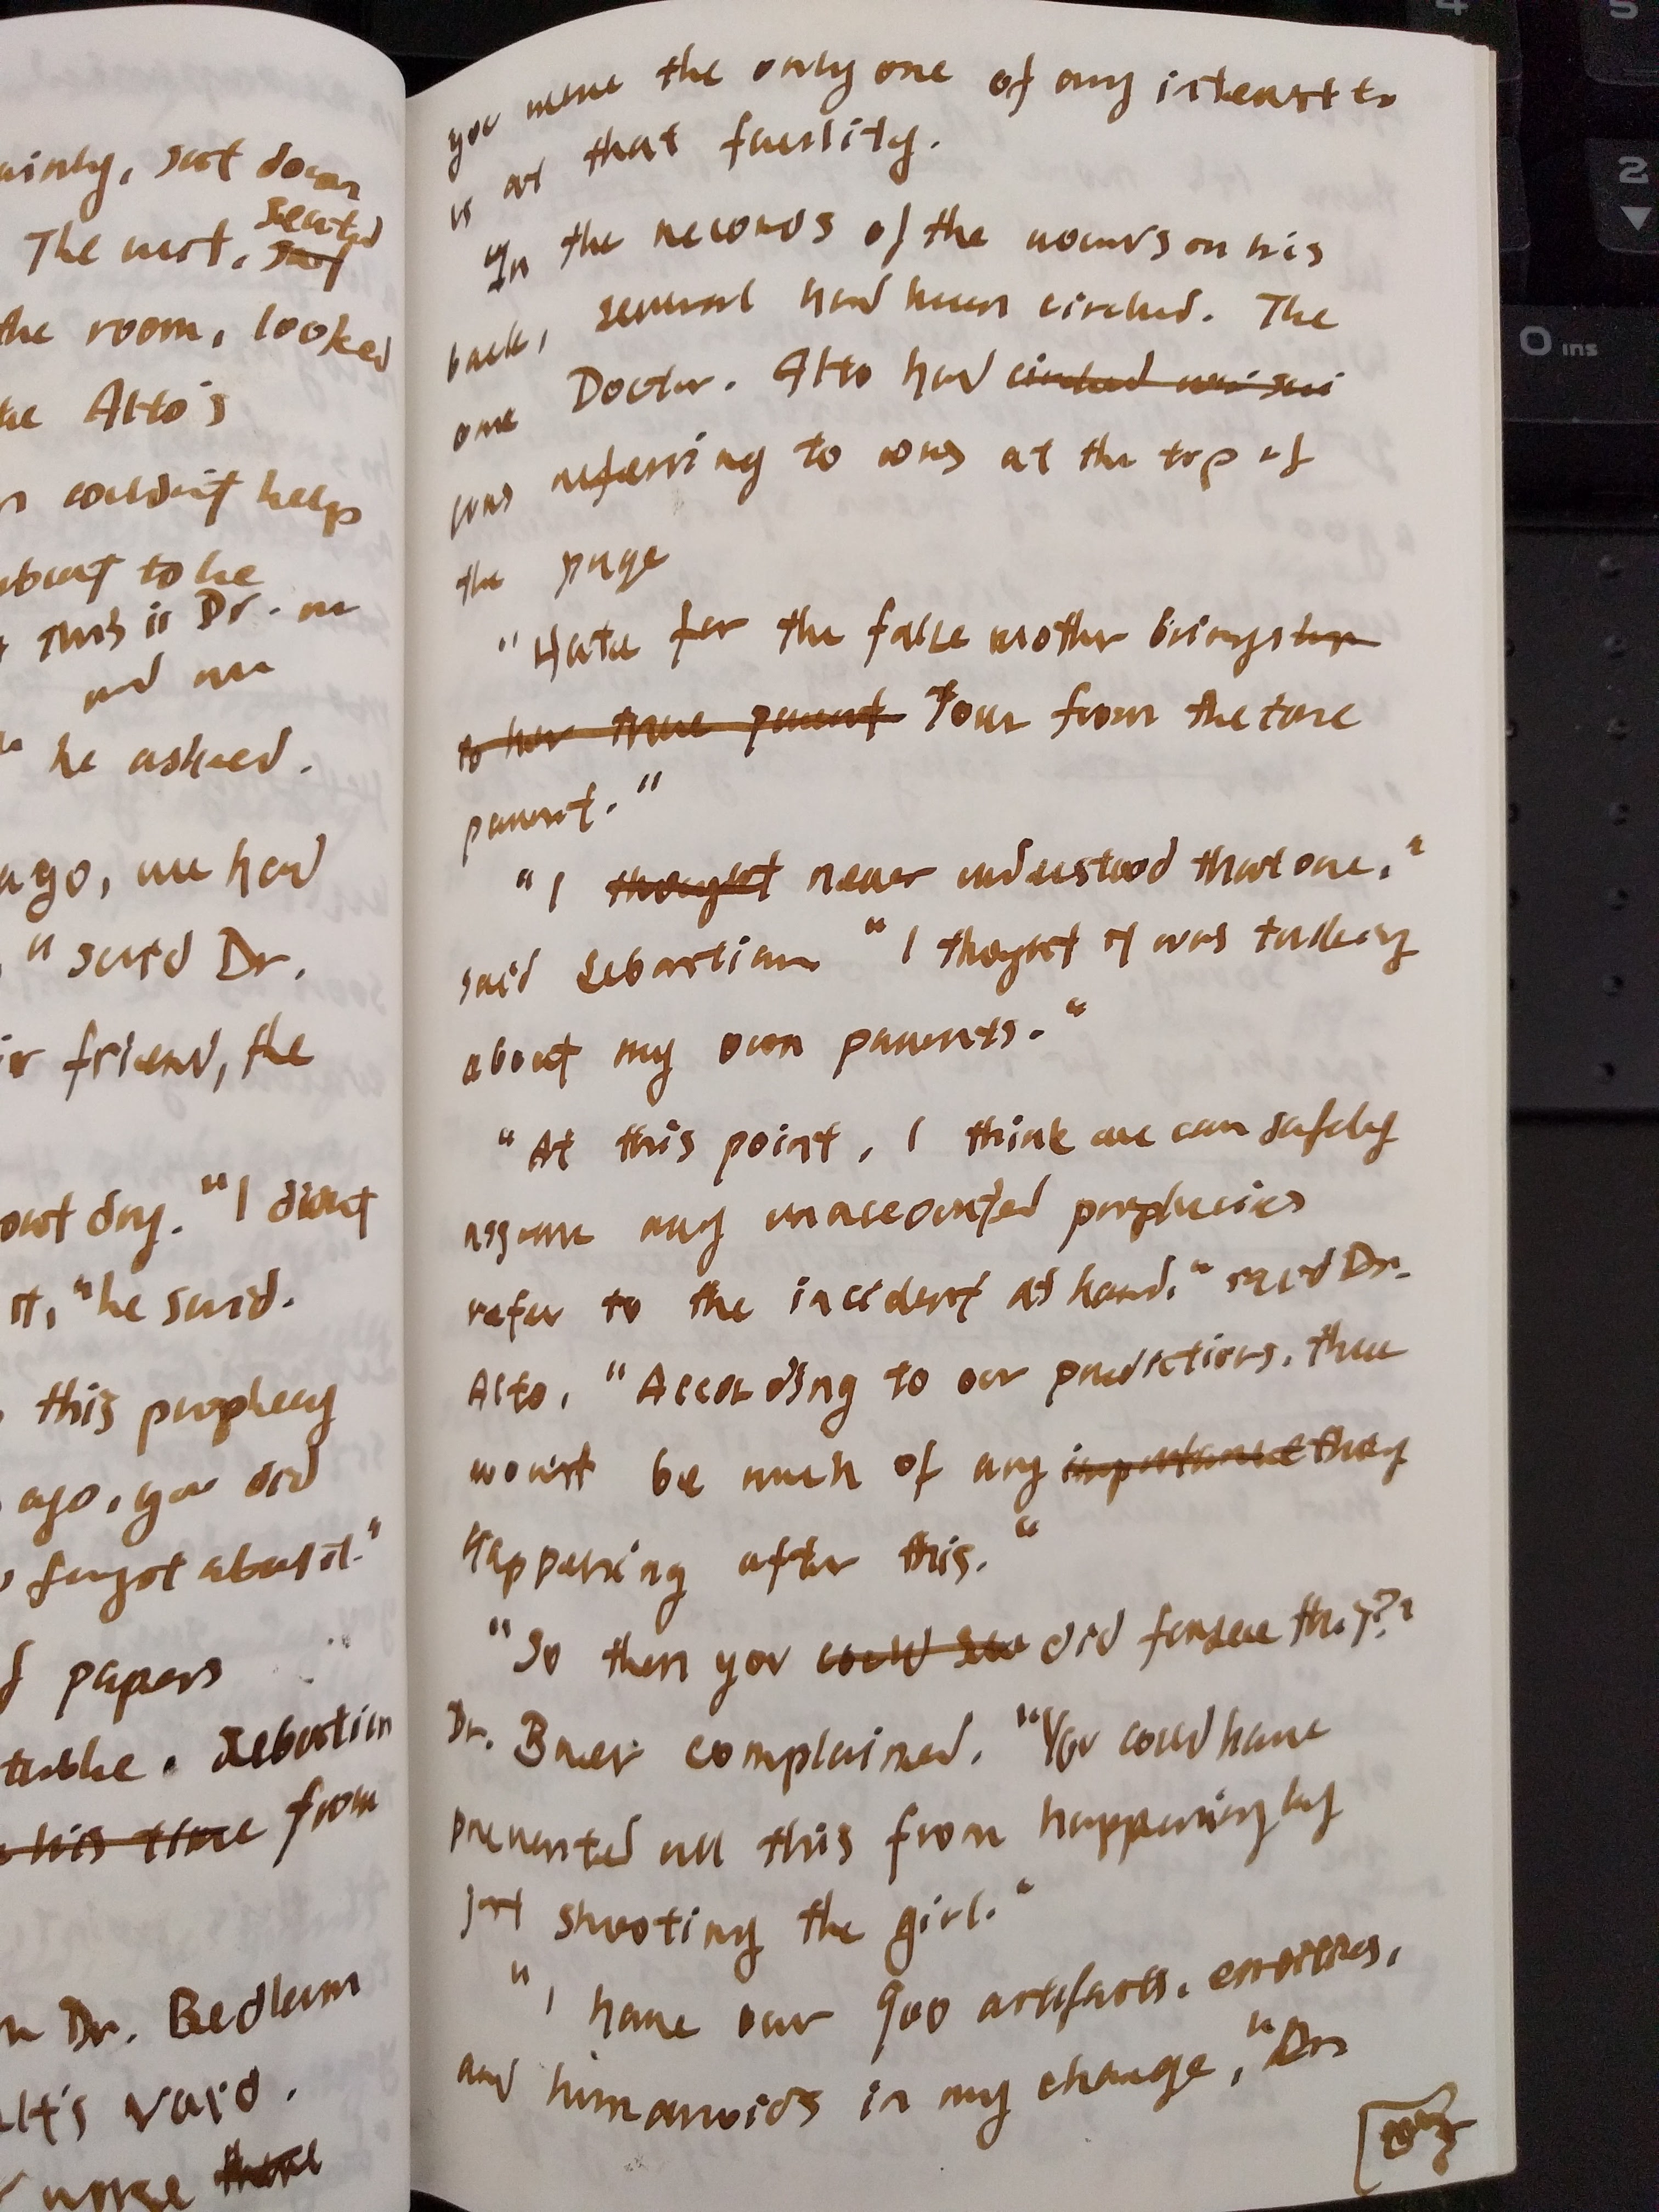 ainly, sat down
The rest, sat seated
the room, looked
he Alto's
couldn't help
about to be
This is Dr.
and
he asked.
ago, we had
" said Dr.
ir friend, the
out day. "I didn't
it," he said.
this prophecy
ago, you did
forgot about it."
f papers
table. Sebastian
his time from
Dr. Bedlam
It's void.
there
you were the only one of any interest to
us at that facility.
In the records of the words on his
back, several had been circled. The
one Doctor. Alto had circled was
was referring to was at the top of
the page
"Hate for the false mother brings her
to her true parent Your from the true
parent."
"I thought never understood that one,"
said Sebastian "I thought it was talking
about my own parents."
"At this point, I think we can safely
assume any unaccounted prophecies
refer to the incident at hand," said Dr.
Alto, "According to our predictions, there
won't be much of any importance thing
happening after this."
"So then you could see did forsee this?"
Dr. Bauer complained. "You could have
prevented all this from happening by
just shooting the girl."
"I have our 900 artifacts, entities,
and humanoids in my charge," Dr